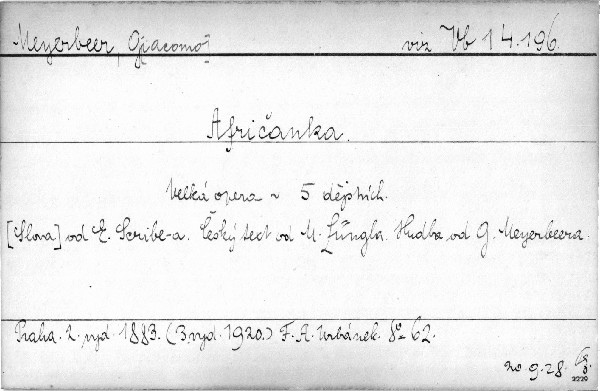 Meyerbeer, Giacomo
viz Vb 14.196.
Afričanka.
Velká opera v 5 dějstvích.
[Slova] od E. Scribe-a. Český text od M. Züngla. Hudba od G. Meyerbeera.
Praha. 2. vyd. 1883. (3 vyd. 1920.) F. A. Urbánek. 8° 62.
20 9. 28.
2229